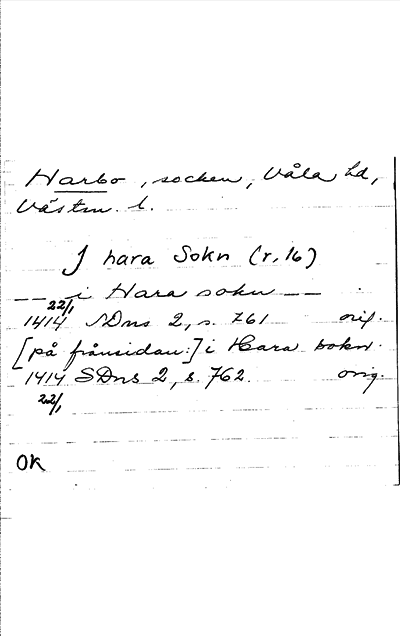 Harbo, socken, Våla hd,
Västm. l.
J hara Sokn (r. 16)
-- i Hara sokn --
22/1
1414 SDns 2, s. 761 orig.
[på frånsidan:] i Hara sokn.
1414 SDns 2, s. 762. orig.
22/1
OK